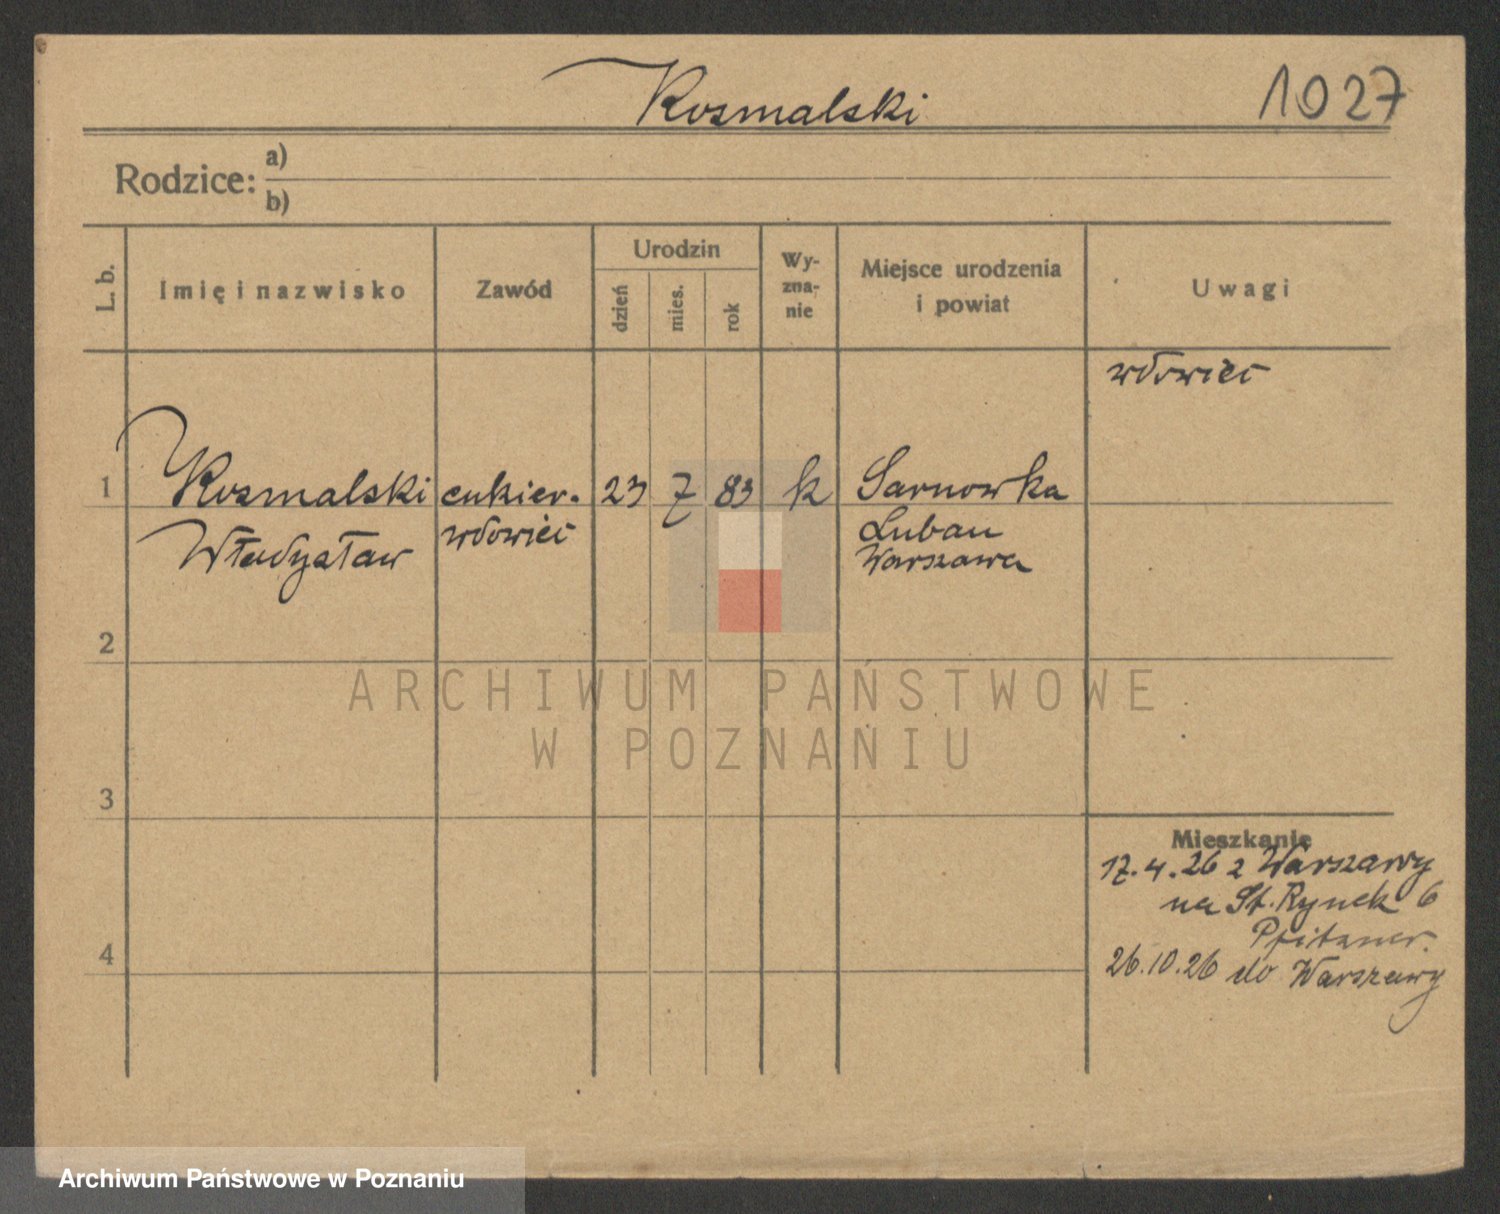 Kosmalski
1027
Rodzice:
a)
b)
L. b.
Imię i nazwisko
Zawód
Urodzin
dzień
mies.
rok
Wy-
zna-
nie
Miejsce urodzenia
i powiat
Uwagi
wdowiec
1
Kosmalski cukier. 23 7 83 k Sarnowka
Władysław wdowiec Lubau
Warszawa
2
ARCHIWUM PAŃSTWOWE
W POZNANIU
3
Mieszkanie
17.4.26 z Warszawy
na St. Rynek 6
Pfitzner.
4
26.10.26 do Warszawy
Archiwum Państwowe w Poznaniu